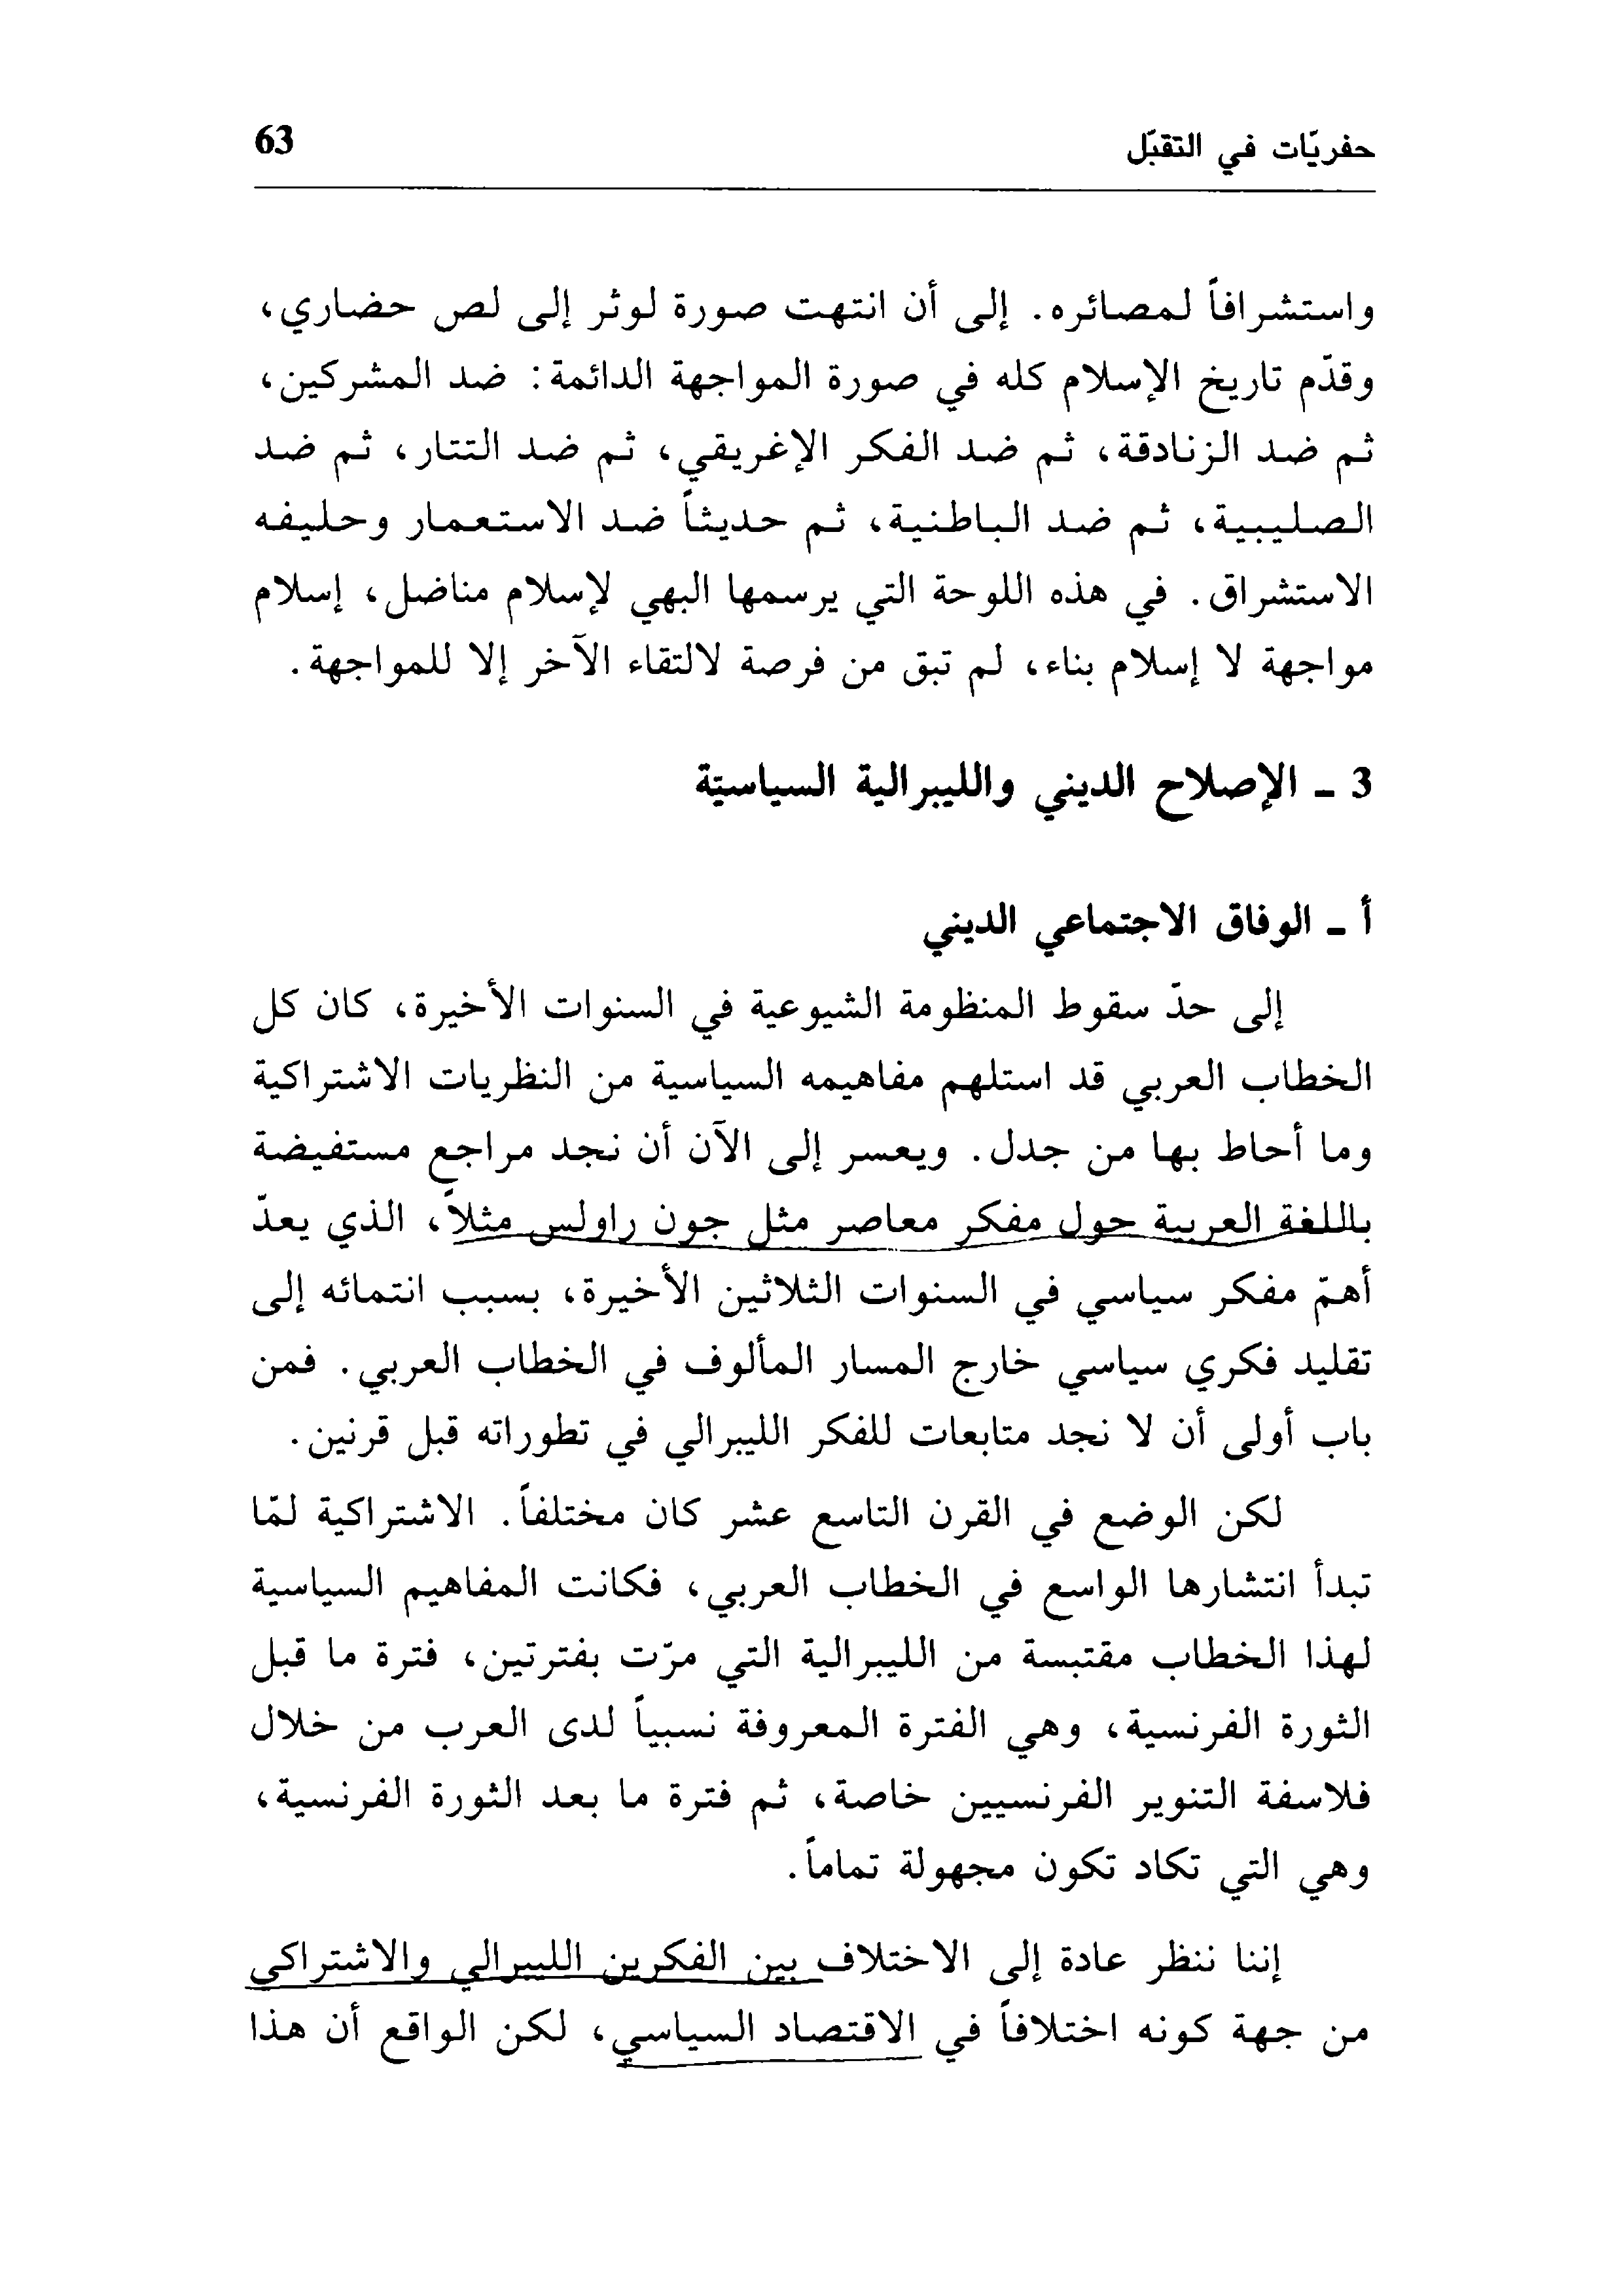 حفريّات في التقبّل 63
واستشرافاً لمصائره. إلى أن انتهت صورة لوثر إلى لص حضاري،
وقدّم تاريخ الإسلام كله في صورة المواجهة الدائمة: ضد المشركين،
ثم ضد الزنادقة، ثم ضد الفكر الإغريقي، ثم ضد التتار، ثم ضد
الصليبية، ثم ضد الباطنية، ثم حديثاً ضد الاستعمار وحليفه
الاستشراق. في هذه اللوحة التي يرسمها البهي لإسلام مناضل، إسلام
مواجهة لا إسلام بناء، لم تبق من فرصة لالتقاء الآخر إلا للمواجهة.
3 - الإصلاح الديني والليبرالية السياسيّة
أ - الوفاق الاجتماعي الديني
إلى حدّ سقوط المنظومة الشيوعية في السنوات الأخيرة، كان كل
الخطاب العربي قد استلهم مفاهيمه السياسية من النظريات الاشتراكية
وما أحاط بها من جدل. ويعسر إلى الآن أن نجد مراجع مستفيضة
باللغة العربية حول مفكر معاصر مثل جون راولس مثلاً، الذي يعدّ
أهمّ مفكر سياسي في السنوات الثلاثين الأخيرة، بسبب انتمائه إلى
تقليد فكري سياسي خارج المسار المألوف في الخطاب العربي. فمن
باب أولى أن لا نجد متابعات للفكر الليبرالي في تطوراته قبل قرنين.
لكن الوضع في القرن التاسع عشر كان مختلفاً. الاشتراكية لمّا
تبدأ انتشارها الواسع في الخطاب العربي، فكانت المفاهيم السياسية
لهذا الخطاب مقتبسة من الليبرالية التي مرّت بفترتين، فترة ما قبل
الثورة الفرنسية، وهي الفترة المعروفة نسبياً لدى العرب من خلال
فلاسفة التنوير الفرنسيين خاصة، ثم فترة ما بعد الثورة الفرنسية،
وهي التي تكاد تكون مجهولة تماماً.
إننا ننظر عادة إلى الاختلاف بين الفكرين الليبرالي والاشتراكي
من جهة كونه اختلافاً في الاقتصاد السياسي، لكن الواقع أن هذا